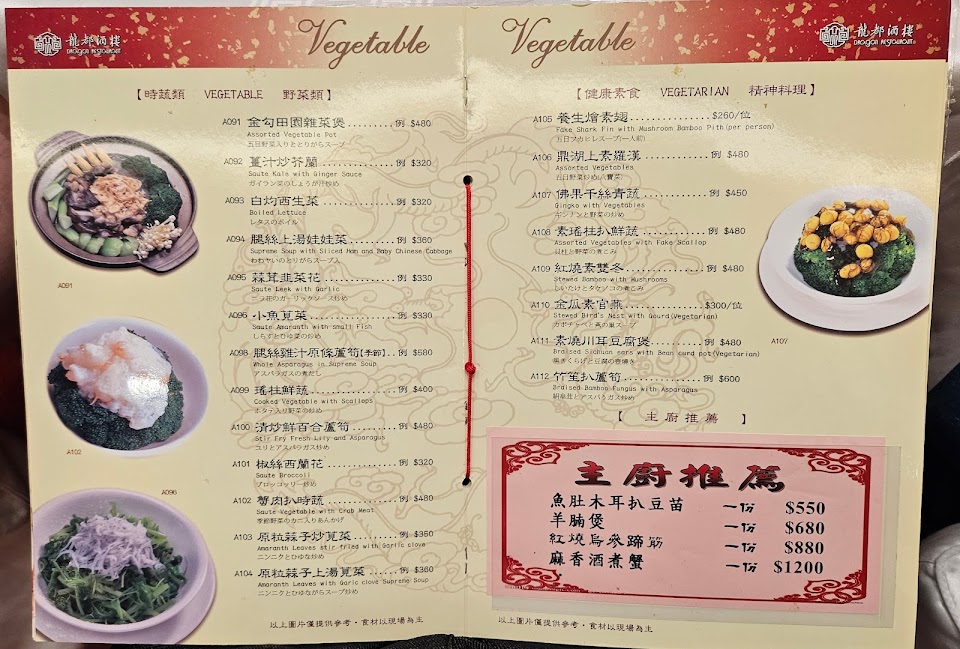 龍都酒樓
DRAGON RESTAURANT
Vegetable
Vegetable
龍都酒樓
DRAGON RESTAURANT
【時蔬類 VEGETABLE 野菜類】
A091 金勾田園雜菜煲........例 $480
Assorted Vegetable Pot
五目野菜入りととりがらスープ
A092 薑汁炒芥蘭............例 $320
Saute Kale with Ginger Sauce
ガイランのしょうが汁炒め
A093 白灼西生菜............例 $320
Boiled Lettuce
レタスのボイル
A094 腿絲上湯娃娃菜........例 $360
Supreme Soup with Sliced Ham and Baby Chinese Cabbage
A095 蒜茸韭菜花............例 $330
Saute Leek with Garlic
ニラ花のガーリックソース炒め
A096 小魚莧菜..............例 $330
Saute Amaranth with small Fish
しらすとひゆ菜の炒め
A098 腿絲雞汁原條蘆筍[季節]..例 $680
Whole Asparagus in Supreme Soup
アスパラガスの煮だし
A099 瑤柱鮮蔬..............例 $400
Cooked Vegetable with Scallops
ホタテ入り野菜の炒め
A100 清炒鮮百合蘆筍........例 $480
Stir Fry Fresh Lily and Asparagus
ユリとアスパラガス炒め
A101 椒絲西蘭花............例 $320
Saute Broccoli
ブロッコリー炒め
A102 蟹肉扒時蔬............例 $480
Saute Vegetable with Crab Meat
季節野菜のカニ入りあんかけ
A103 原粒蒜子炒莧菜........例 $350
Amaranth Leaves stir fried with Garlic clove
ニンニクとひゆな炒め
A104 原粒蒜子上湯莧菜......例 $360
Amaranth Leaves with Garlic clove Supreme Soup
ニンニクとひゆながらスープ炒め
A091
A102
A096
以上圖片僅提供參考‧食材以現場為主
【健康素食 VEGETARIAN 精神料理】
A105 養生燴素翅............$260/位
Fake Shark Fin with Mushroom Bamboo Pith(per person)
五目フカヒレスープ(一人前)
A106 鼎湖上素羅漢..........例 $480
Assorted Vegetables
五目野菜炒め(八寶菜)
A107 佛果千絲青蔬..........例 $450
Gingko with Vegetables
ギンナンと野菜の炒め
A108 素瑤柱扒鮮蔬..........例 $480
Assorted Vegetables with Fake Scallop
貝柱と野菜の煮こみ
A109 紅燒素雙冬............例 $480
Stewed Bamboo with Mushrooms
しいたけとタケノコの煮こみ
A110 金瓜素官燕............$300/位
Stewed Bird's Nest with Gourd(Vegetarian)
A111 素燒川耳豆腐煲........例 $480
Braised Sichuan ears with Bean curd pot(Vegetarian)
A112 竹笙扒蘆筍............例 $600
Braised Bamboo Fungus with Asparagus
【 主廚推薦 】
A107
主廚推薦
魚肚木耳扒豆苗 一份 $550
羊腩煲 一份 $680
紅燒烏參蹄筋 一份 $880
麻香酒煮蟹 一份 $1200
以上圖片僅提供參考‧食材以現場為主